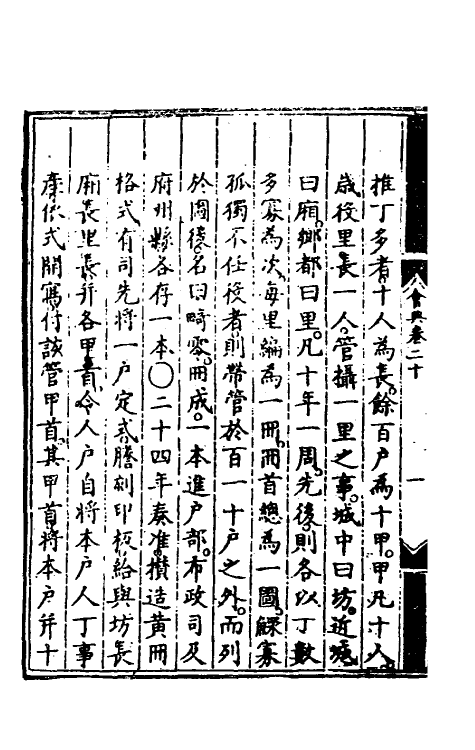 會典卷二十
一
推丁多者十人為長。餘百户為十甲。甲凡十人。
歲役里長一人。管攝一里之事。城中曰坊。近城
曰廂。鄉都曰里。凡十年一周。先後則各以丁數
多寡為次。每里編為一冊。冊首總為一圖。鰥寡
孤獨不任役者則帶管於百一十户之外。而列
於圖後。名曰畸零。冊成。一本進户部。布政司及
府州縣各存一本〇二十四年奏准。攢造黃冊
格式有司先將一户定式謄刻印板給與坊長
廂長里長幷各甲首。令人户自將本户人丁事
產依式開寫付該管甲首。其甲首將本户幷十